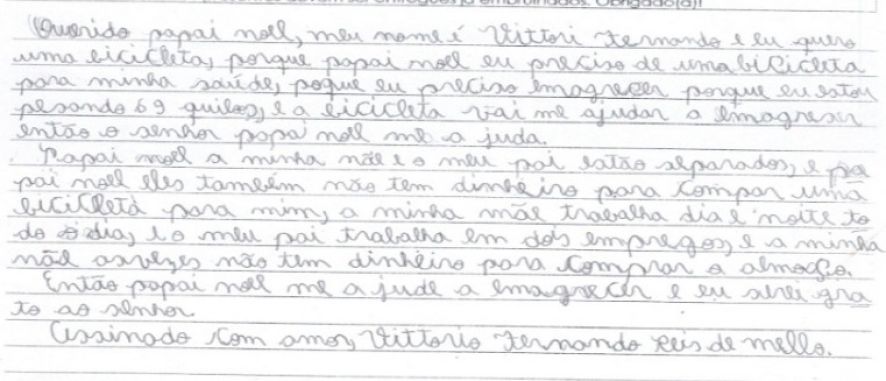 Querido papai noel, meu nome é Vittori Fernando e eu quero
uma bicicleta, porque papai noel eu preciso de uma bicicleta
para minha saúde, pogue eu preciso emagrecer porque eu estou
pesando 69 quilos, e a bicicleta vai me ajudar a emagreser
então o senhor papai noel me a juda.
Papai noel a minha mãe e o meu pai estão separados, e pa
pai noel eles também não tem dinheiro para compar uma
bicicleta para mim, a minha mãe trabalha dia e noite to
do o dia, e o meu pai trabalha em dois empregos, e a minha
mãe asvezes não tem dinheiro para comprar o almoço.
Então papai noel me a jude a emagrecer e eu serei gra
to ao senhor.
Assinado com amor, Vittorio Fernando Reis de mello.